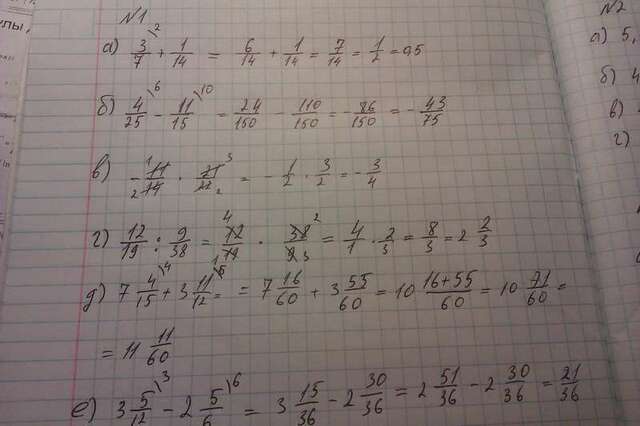 №1
а) 3/7 \2 + 1/14 = 6/14 + 1/14 = 7/14 = 1/2 = 0,5
б) 4/25 \6 - 11/15 \10 = 24/150 - 110/150 = - 86/150 = - 43/75
в) - 11/14 · 21/22 = - 1/2 · 3/2 = - 3/4
г) 12/19 : 9/38 = 12/19 · 38/9 = 4/1 · 2/3 = 8/3 = 2 2/3
д) 7 4/15 \4 + 3 11/12 \5 = = 7 16/60 + 3 55/60 = 10 16+55/60 = 10 71/60 =
= 11 11/60
е) 3 5/12 \3 - 2 5/6 \6 = 3 15/36 - 2 30/36 = 2 51/36 - 2 30/36 = 21/36
№2
а) 5,
б) 4
в)
г)